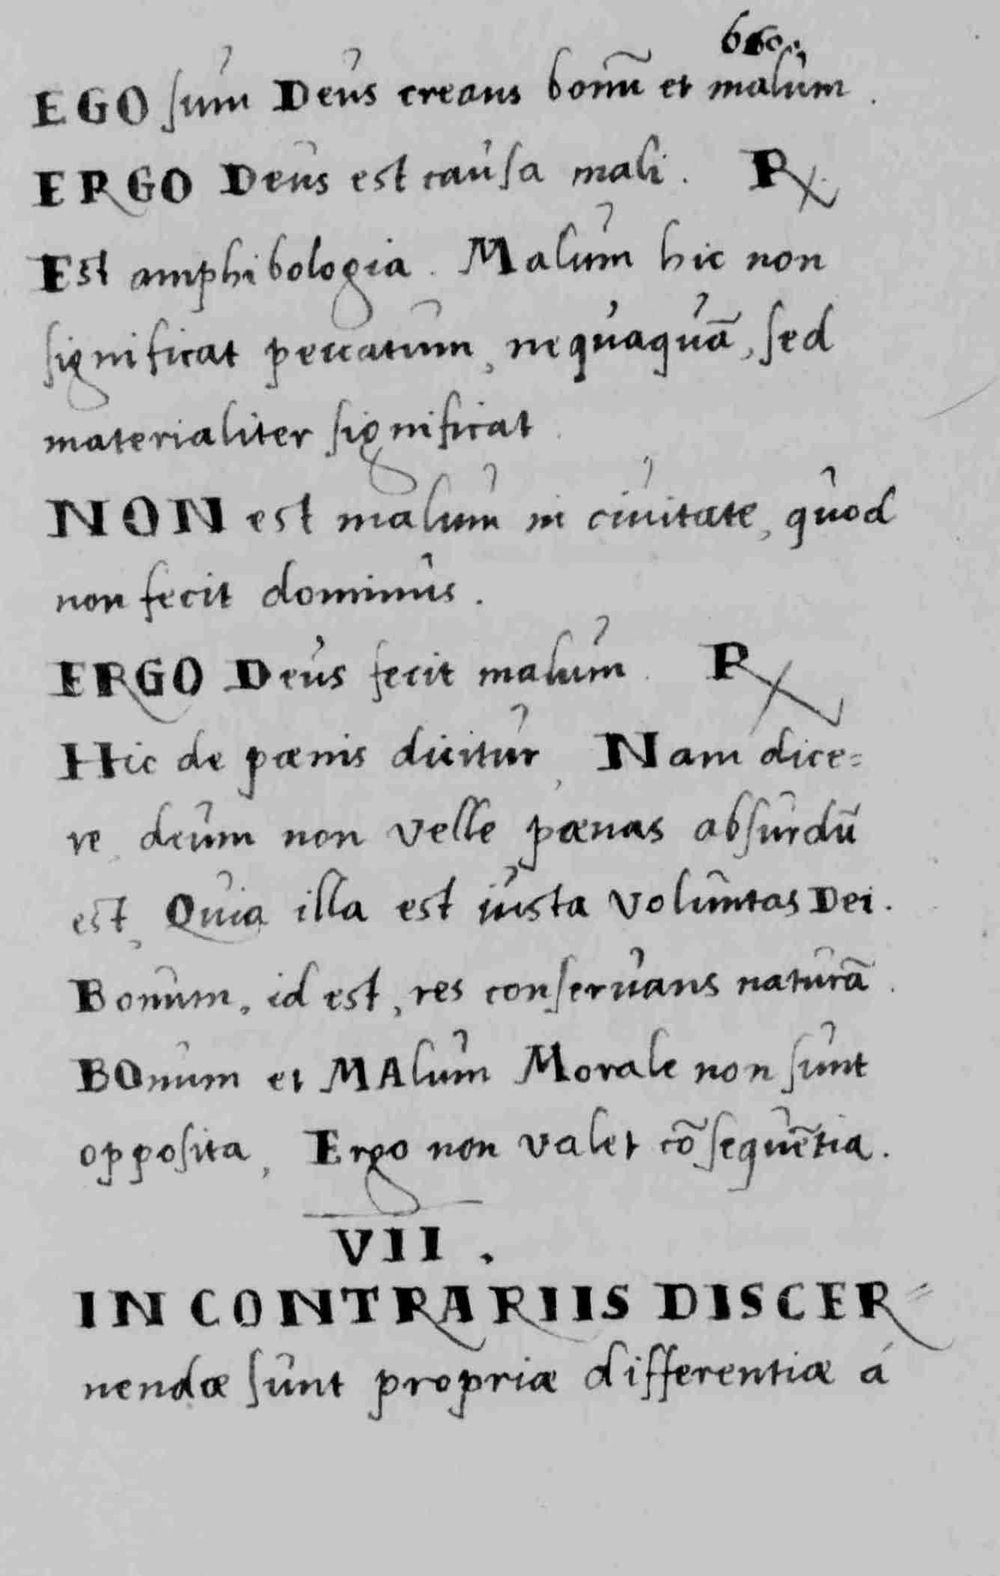 660.
EGO sum Deus creans bonũ et malum.
ERGO Deus est causa mali. R
Est amphibologia. Malum hic non
significat peccatum, nequaquã, sed
materialiter significat.
NON est malum in ciuitate, quod
non fecit dominus.
ERGO Deus fecit malum. R
Hic de pœnis dicitur, Nam dice=
re deum non velle pœnas absurdũ
est, Quia illa est iusta voluntas Dei.
Bonum, id est, res conseruans naturã.
BOnum et MAlum Morale non sunt
opposita, Ergo non valet cõsequẽtia.
VII.
IN CONTRARIIS DISCER=
nendæ sunt propriæ differentiæ á